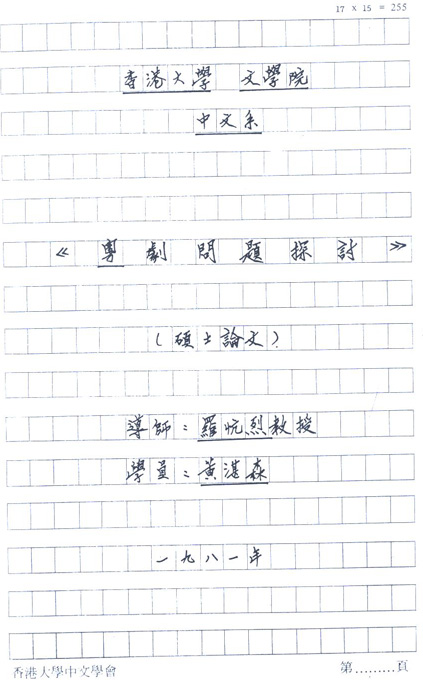 17 X 15 = 255
香港大學 文學院
中文系
《粵劇問題探討》
(碩士論文)
導師：羅忼烈教授
學員：黃湛森
一九八一年
香港大學中文學會 第.........頁